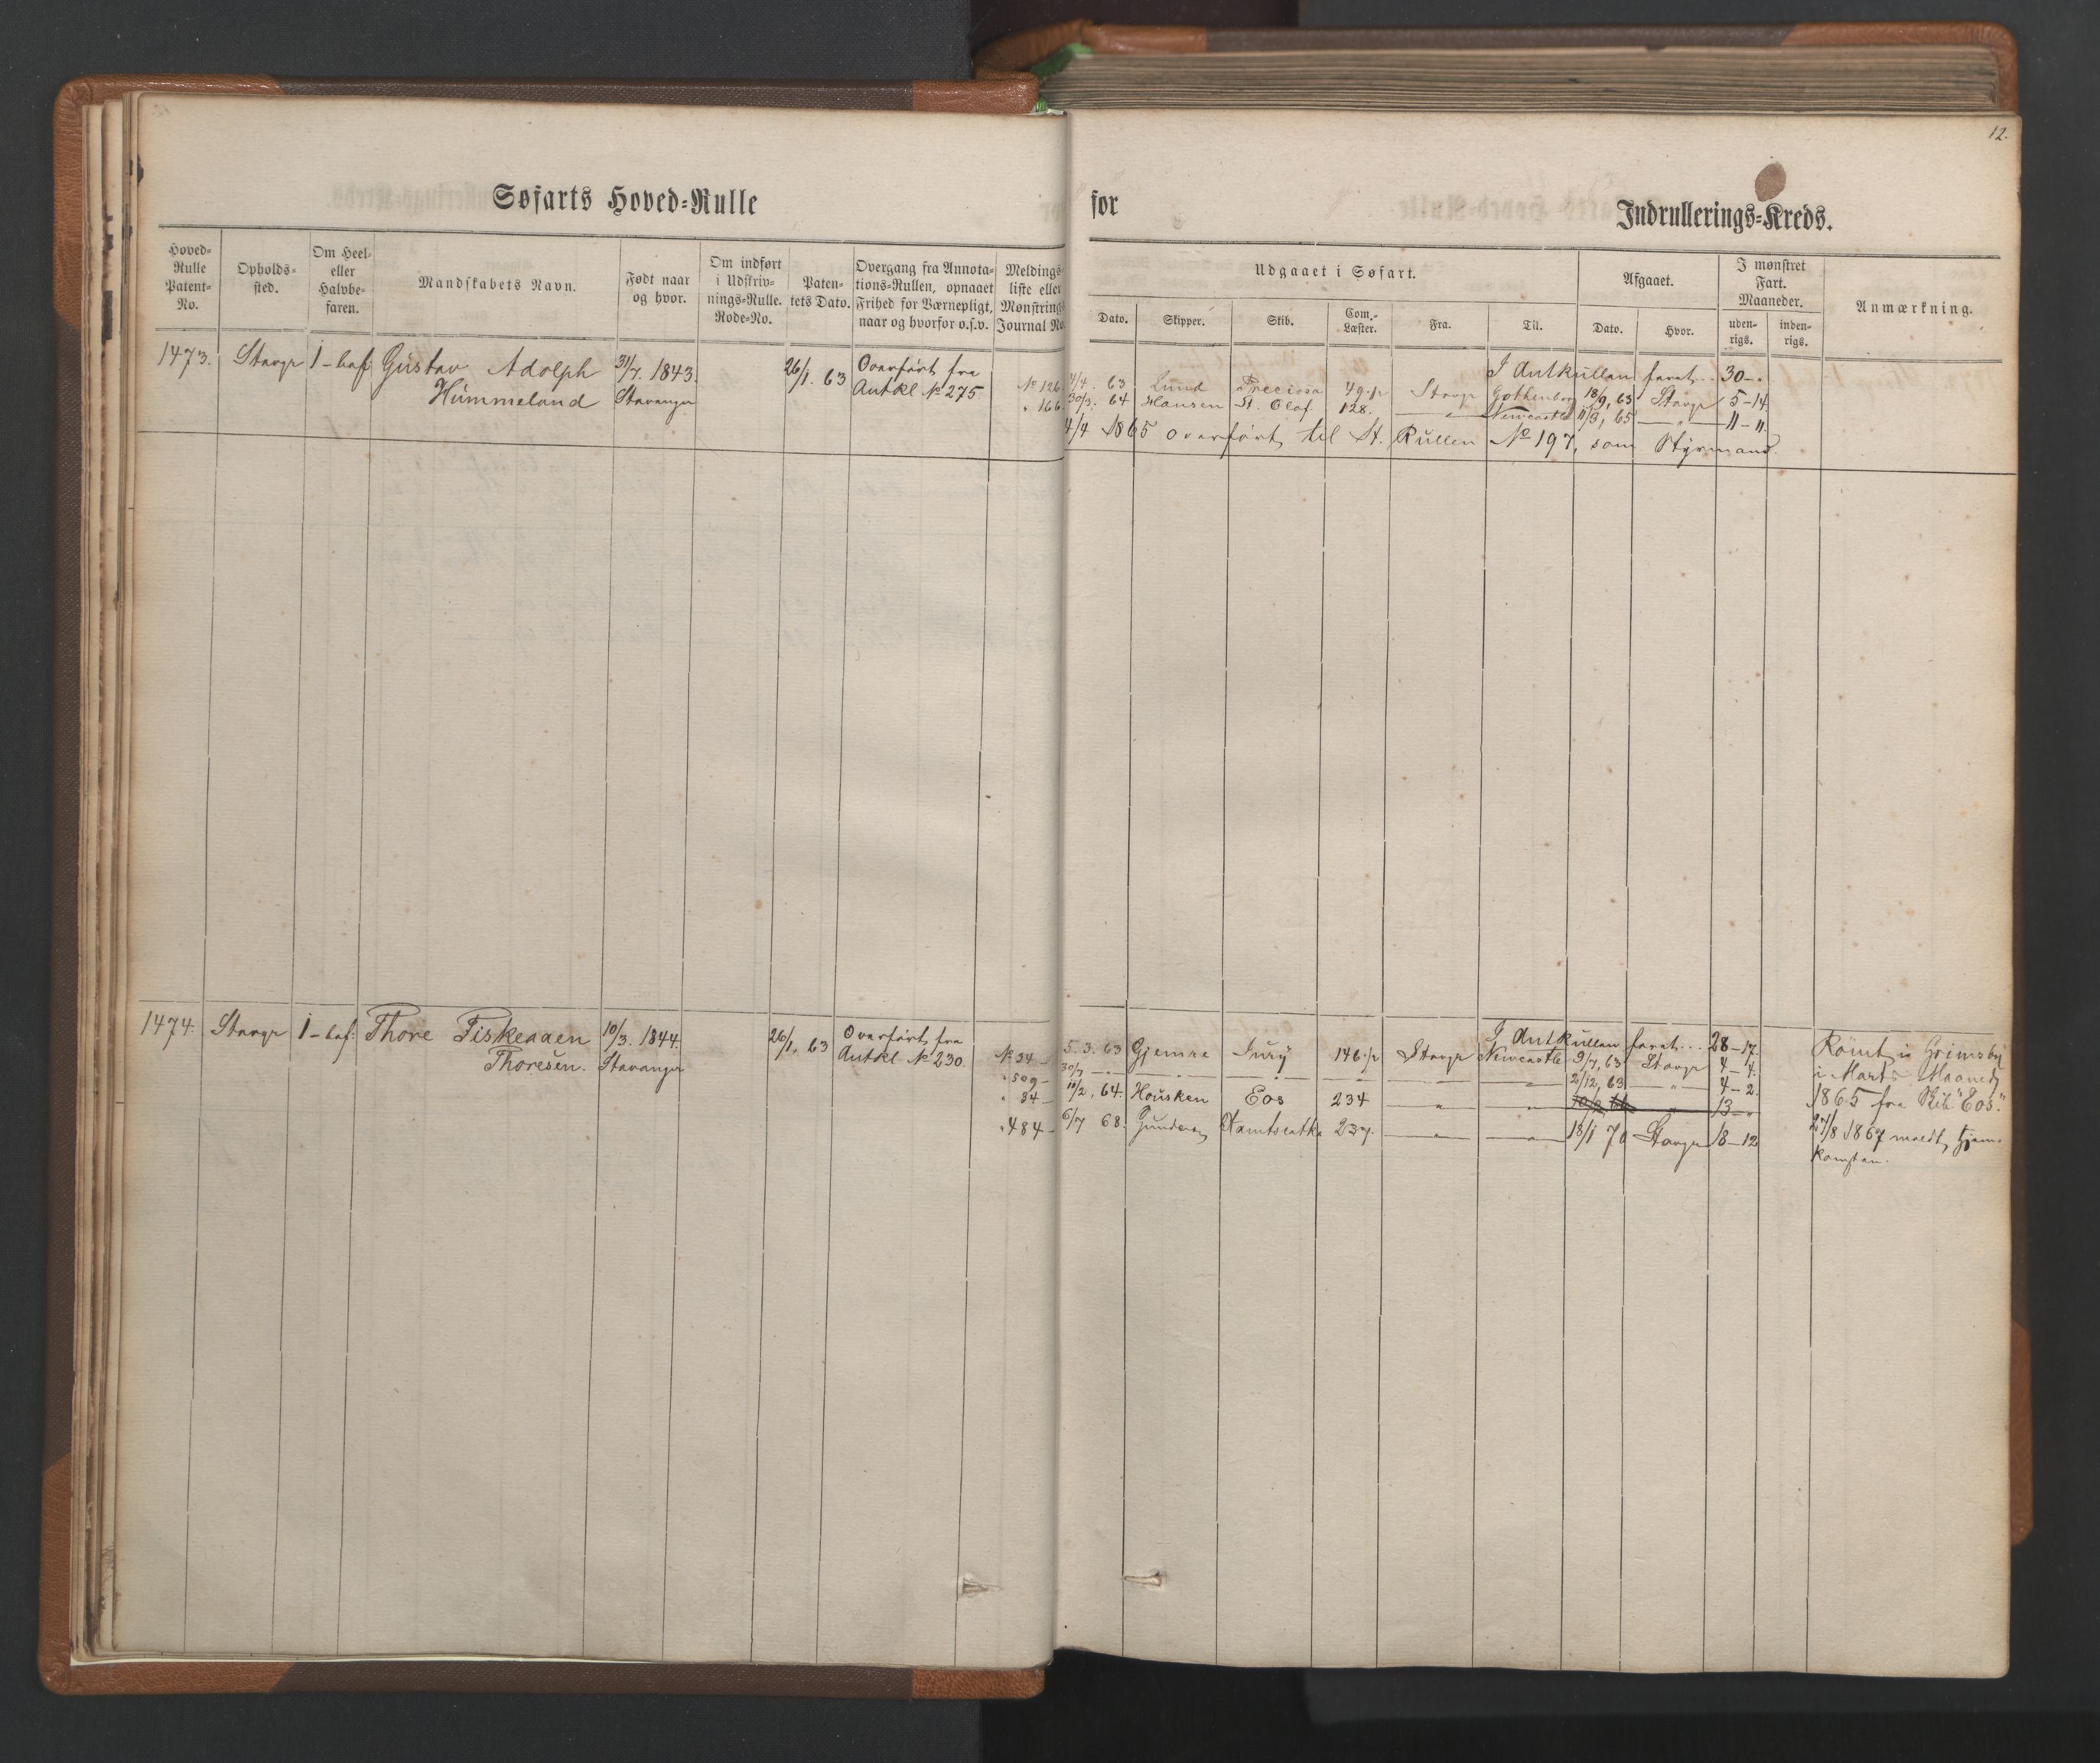 12.
Søfarts Hoved-Rulle for Indrullerings-Kreds.
Hoved-Rulle Patent-No.
Opholds-sted.
Om Heel- eller Halvbe-faren.
Mandskabets Navn.
Født naar og hvor.
Om indført i Udskriv-nings-Rulle. Rode-No.
Paten-tets Dato.
Overgang fra Annota-tions-Rullen, opnaaet Frihed for Værnepligt, naar og hvorfor o.s.v.
Meldings-liste eller Mønstrings Journal No.
Udgaaet i Søfart.
Dato. Skipper. Skib. Com.-Læster. Fra. Til.
Afgaaet.
Dato. Hvor.
I mønstret Fart. Maaneder.
uden-rigs. inden-rigs.
Anmærkning.
1473. Stavgr 1-baf: Gustav Adolph 31/7. 1843. 26/1. 63 Overført fra
Hummeland Stavanger Antkl No 275.
I Antkullen faret... 30-"
No 126 4/4. 63 Lund Preciosa 49 Stavgr Gothenborg 18/9, 63 Stavgr 5-14.
" 166. 30/3. 64 Hansen St. Olaf 128. " Newcastle 11/3, 65 " 11-11.
4/4 1865 overført til St. Rullen No 197, som Styrmand.
1474. Stavgr 1-baf: Thore Fiskeaaen 10/3. 1844. 26/1. 63 Overført fra
Thoresen. Stavanger Antkl No 230.
I Antkullen faret... 28-17.
No 34 5.3.63 Gjemre Jury 146 Stavgr Newcastle 9/7, 63 Stavgr 4-4.
" 509 30/7 " " " " " 2/12, 63 " 4-2.
" 34 10/2, 64. Housken Eos 234 " " " 13-"
" 484 6/7 68. Gundersen Kamtscatka 237. " " 18/1 70 Stavgr 18-12
Römt i Grimsby
i Marts Maaned
1865 fra Skib "Eos."
27/8 1867 meldt hjem-
komsten.